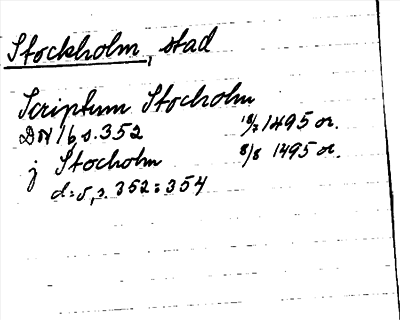 Stockholm, stad
Scriptum Stocholm
DN 16, s. 352 18/7 1495 or.
j Stocholm 8/8 1495 or.
d:o, s. 352: 354